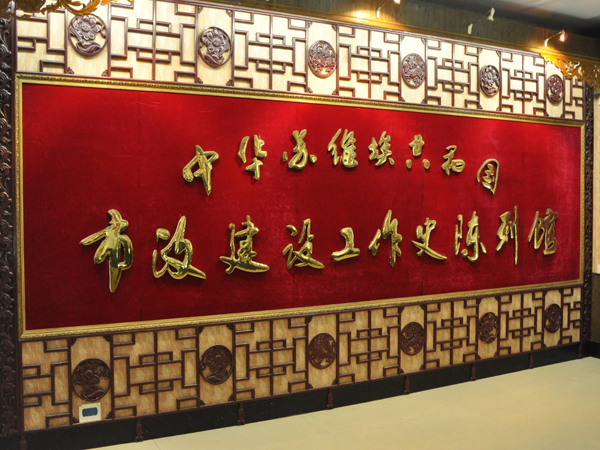 中华苏维埃共和国
市政建设工作史陈列馆